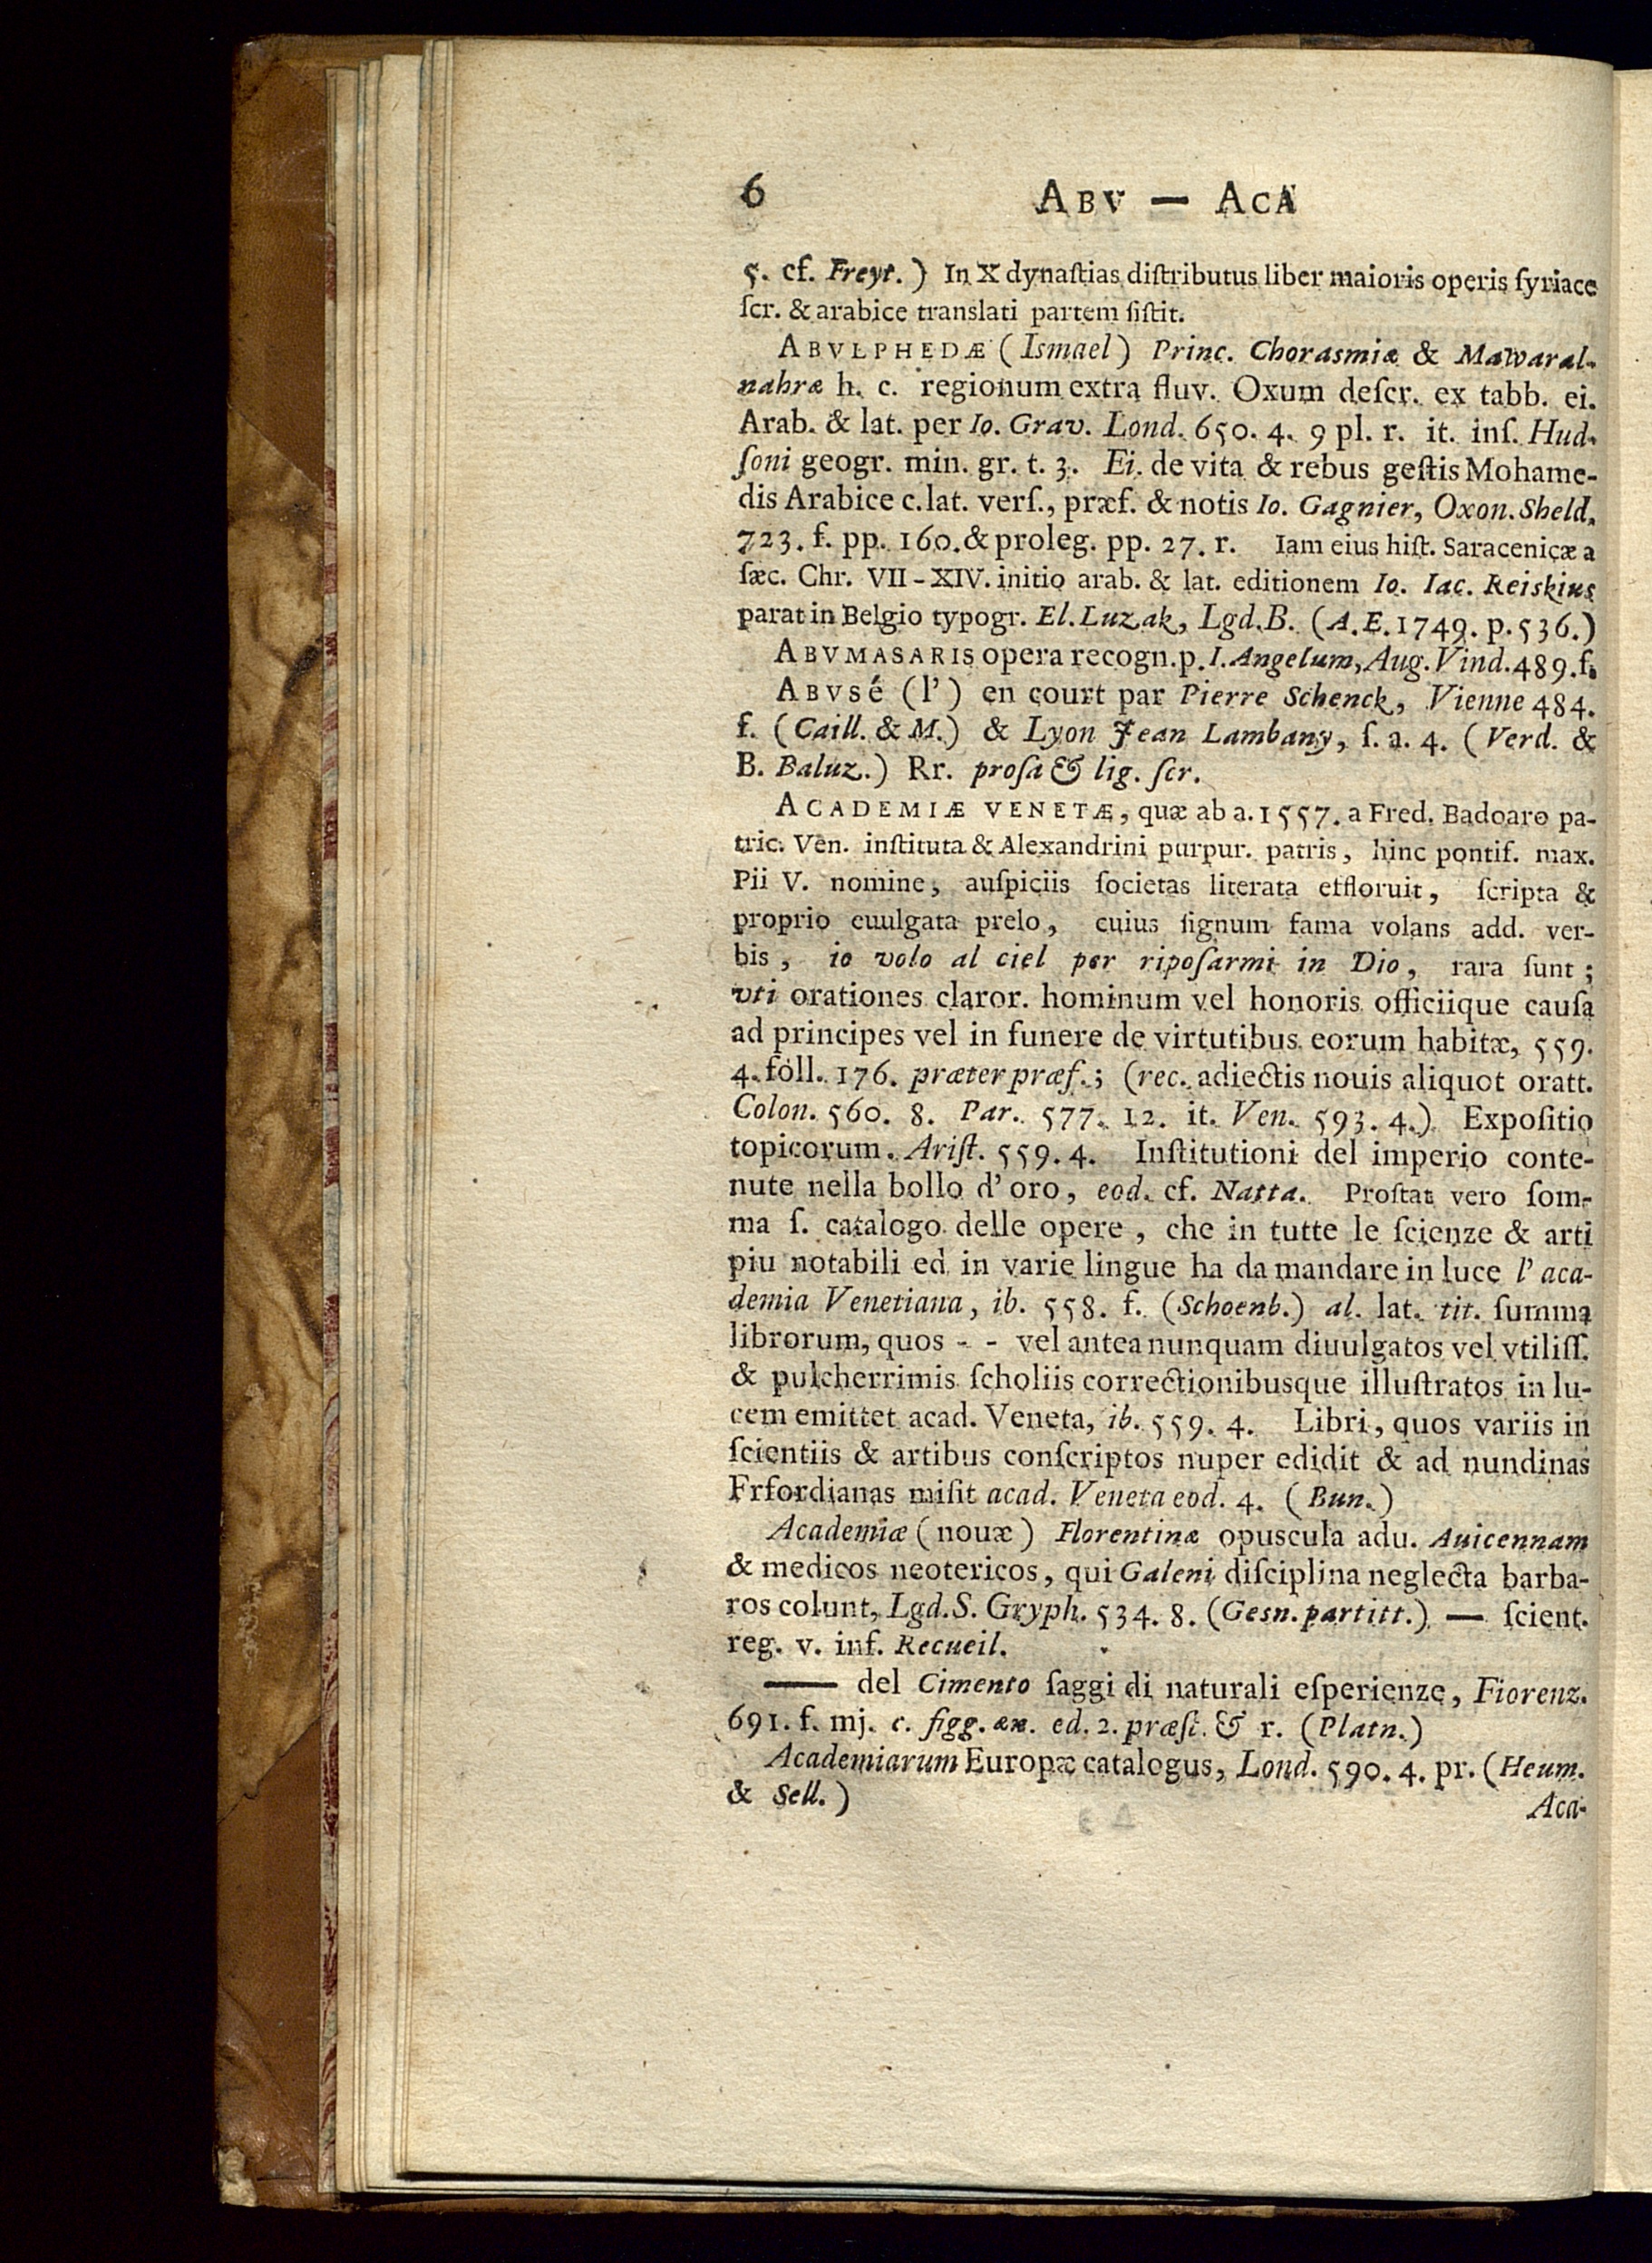 6 ABV — ACA
5. cf. Freyt.) In X dynaſtias diſtributus liber maioris operis ſyriace
ſcr. & arabice translati partem ſiſtit.
ABVLPHEDÆ (Ismael) Princ. Chorasmiæ & Mawaral-
nahræ h. c. regionum extra fluv. Oxum deſcr. ex tabb. ei.
Arab. & lat. per Io. Grav. Lond. 650. 4. 9 pl. r. it. inſ. Hud-
ſoni geogr. min. gr. t. 3. Ei. de vita & rebus geſtis Mohame-
dis Arabice c. lat. verſ., præf. & notis Io. Gagnier, Oxon. Sheld.
723. f. pp. 160. & proleg. pp. 27. r. Iam eius hiſt. Saracenicæ a
ſæc. Chr. VII - XIV. initio arab. & lat. editionem Io. Iac. Reiskius
parat in Belgio typogr. El. Luzak, Lgd. B. (A. E. 1749. p. 536.)
ABVMASARIS opera recogn. p. I. Angelum, Aug. Vind. 489. f.
ABVSé (l') en court par Pierre Schenck, Vienne 484.
f. (Caill. & M.) & Lyon Jean Lambany, ſ. a. 4. (Verd. &
B. Baluz.) Rr. proſa & lig. ſcr.
ACADEMIÆ VENETÆ, quæ ab a. 1557. a Fred. Badoaro pa-
tric. Ven. inſtituta & Alexandrini purpur. patris, hinc pontif. max.
Pii V. nomine, auſpiciis ſocietas literata effloruit, ſcripta &
proprio euulgata prelo, cuius ſignum fama volans add. ver-
bis, io volo al ciel per ripoſarmi in Dio, rara ſunt;
vti orationes claror. hominum vel honoris officiique cauſa
ad principes vel in funere de virtutibus eorum habitæ, 559.
4. foll. 176. præter præf.; (rec. adiectis nouis aliquot oratt.
Colon. 560. 8. Par. 577. 12. it. Ven. 593. 4.) Expoſitio
topicorum. Ariſt. 559. 4. Inſtitutioni del imperio conte-
nute nella bollo d'oro, eod. cf. Natta. Proſtat vero ſom-
ma ſ. catalogo delle opere, che in tutte le ſcienze & arti
piu notabili ed in varie lingue ha da mandare in luce l'aca-
demia Venetiana, ib. 558. f. (Schoenb.) al. lat. tit. ſumma
librorum, quos - - vel antea nunquam diuulgatos vel vtiliſſ.
& pulcherrimis ſcholiis correctionibusque illuſtratos in lu-
cem emittet acad. Veneta, ib. 559. 4. Libri, quos variis in
ſcientiis & artibus conſcriptos nuper edidit & ad nundinas
Frfordianas miſit acad. Veneta eod. 4. (Bun.)
Academiæ (nouæ) Florentinæ opuscula adu. Auicennam
& medicos neotericos, qui Galeni diſciplina neglecta barba-
ros colunt, Lgd. S. Gryph. 534. 8. (Gesn. partitt.) — ſcient.
reg. v. inf. Recueil.
— del Cimento ſaggi di naturali eſperienze, Fiorenz.
691. f. mj. c. figg. æn. ed. 2. præſt. & r. (Platn.)
Academiarum Europæ catalogus, Lond. 590. 4. pr. (Heum.
& Sell.)
Aca-